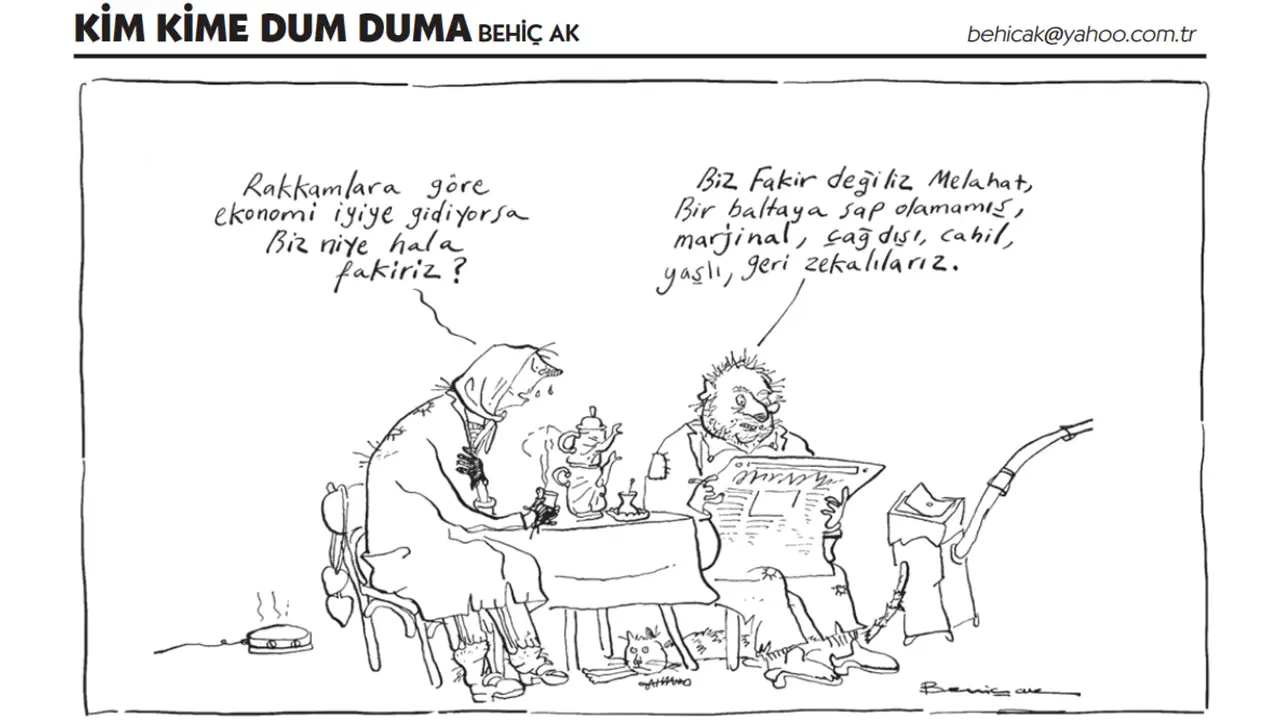 KİM KİME DUM DUMA BEHİÇ AK
behicak@yahoo.com.tr
Rakkamlara göre
ekonomi iyiye gidiyorsa
Biz niye hala
fakiriz?
Biz Fakir değiliz Melahat,
Bir baltaya sap olamamış,
marjinal, çağdışı, cahil,
yaşlı, geri zekalılarız.
Behiç AK